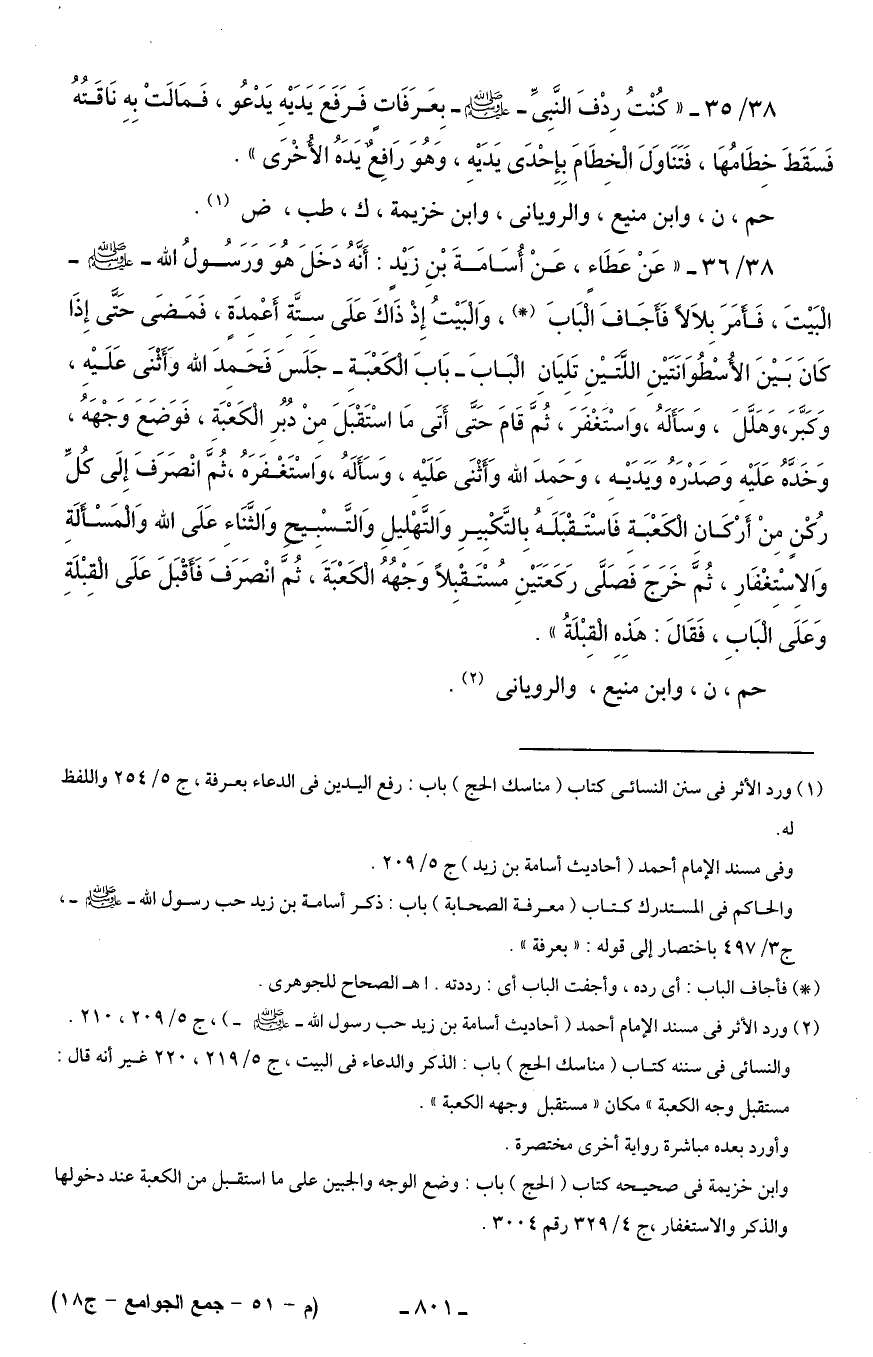 ٣٥/٣٨ ـ « كُنْتُ رِدْفَ النَّبِيِّ ـ ﷺ ـ بِعَرَفَاتٍ فَرَفَعَ يَدَيْهِ يَدْعُو ، فَمَالَتْ بِهِ نَاقَتُهُ
فَسَقَطَ خِطَامُهَا ، فَتَنَاوَلَ الْخِطَامَ بِإِحْدَى يَدَيْهِ ، وَهُوَ رَافِعٌ يَدَهُ الأُخْرَى » .
حم ، ن ، وابن منيع ، والرويانى ، وابن خزيمة ، ك ، طب ، ض (١) .
٣٦/٣٨ ـ « عَنْ عَطَاءٍ ، عَنْ أُسَامَةَ بْنِ زَيْدٍ : أَنَّهُ دَخَلَ هُوَ وَرَسُولُ الله ـ ﷺ ـ
الْبَيْتَ ، فَأَمَرَ بِلاَلاً فَأَجَافَ الْبَابَ (*) ، وَالْبَيْتُ إِذْ ذَاكَ عَلَى سِتَّةِ أَعْمِدَةٍ ، فَمَضَى حَتَّى إِذَا
كَانَ بَيْنَ الأُسْطُوَانَتَيْنِ اللَّتَيْنِ تَلِيَانِ الْبَابَ ـ بَابَ الْكَعْبَةِ ـ جَلَسَ فَحَمِدَ الله وَأَثْنَى عَلَيْهِ ،
وَكَبَّرَ،وَهَلَّلَ ، وَسَأَلَهُ ،وَاسْتَغْفَرَ ، ثُمَّ قَامَ حَتَّى أَتَى مَا اسْتَقْبَلَ مِنْ دُبُرِ الْكَعْبَةِ ، فَوَضَعَ وَجْهَهُ ،
وَخَدَّهُ عَلَيْهِ وَصَدْرَهُ وَيَدَيْهِ ، وَحَمِدَ الله وَأَثْنَى عَلَيْهِ ، وَسَأَلَهُ ،وَاسْتَغْفَرَهُ ،ثُمَّ انْصَرَفَ إِلَى كُلِّ
رُكْنٍ مِنْ أَرْكَانِ الْكَعْبَةِ فَاسْتَقْبَلَهُ بِالتَّكْبِيرِ وَالتَّهْلِيلِ وَالتَّسْبِيحِ وَالثَّنَاءِ عَلَى الله وَالْمَسْأَلَةِ
وَالاِسْتِغْفَارِ ، ثُمَّ خَرَجَ فَصَلَّى رَكْعَتَيْنِ مُسْتَقْبِلاً وَجْهُهُ الْكَعْبَةَ ، ثُمَّ انْصَرَفَ فَأَقْبَلَ عَلَى الْقِبْلَةِ
وَعَلَى الْبَابِ ، فَقَالَ : هَذِهِ الْقِبْلَةُ » .
حم ، ن ، وابن منيع ، والرويانى (٢) .
(١) ورد الأثر فى سنن النسائى كتاب ( مناسك الحج ) باب : رفع اليدين فى الدعاء بعرفة ، ج ٥/ ٢٥٤ واللفظ
له.
وفى مسند الإمام أحمد ( أحاديث أسامة بن زيد ) ج ٥/ ٢٠٩ .
والحاكم فى المستدرك كتاب ( معرفة الصحابة ) باب : ذكر أسامة بن زيد حب رسول الله ـ ﷺ ـ ،
ج٣/ ٤٩٧ باختصار إلى قوله : « بعرفة » .
(*) فأجاف الباب : أى رده ، وأجفت الباب أى : رددته . ا هـ الصحاح للجوهرى .
(٢) ورد الأثر فى مسند الإمام أحمد ( أحاديث أسامة بن زيد حب رسول الله ـ ﷺ ـ ) ، ج ٥/ ٢٠٩ ، ٢١٠ .
والنسائى فى سننه كتاب ( مناسك الحج ) باب : الذكر والدعاء فى البيت ، ج ٥/ ٢١٩ ، ٢٢٠ غير أنه قال :
مستقبل وجه الكعبة » مكان « مستقبل وجهه الكعبة » .
وأورد بعده مباشرة رواية أخرى مختصرة .
وابن خزيمة فى صحيحه كتاب ( الحج ) باب : وضع الوجه والجبين على ما استقبل من الكعبة عند دخولها
والذكر والاستغفار ،ج ٤/ ٣٢٩ رقم ٣٠٠٤ .
ـ ٨٠١ ـ (م - ٥١ - جمع الجوامع - ج١٨)